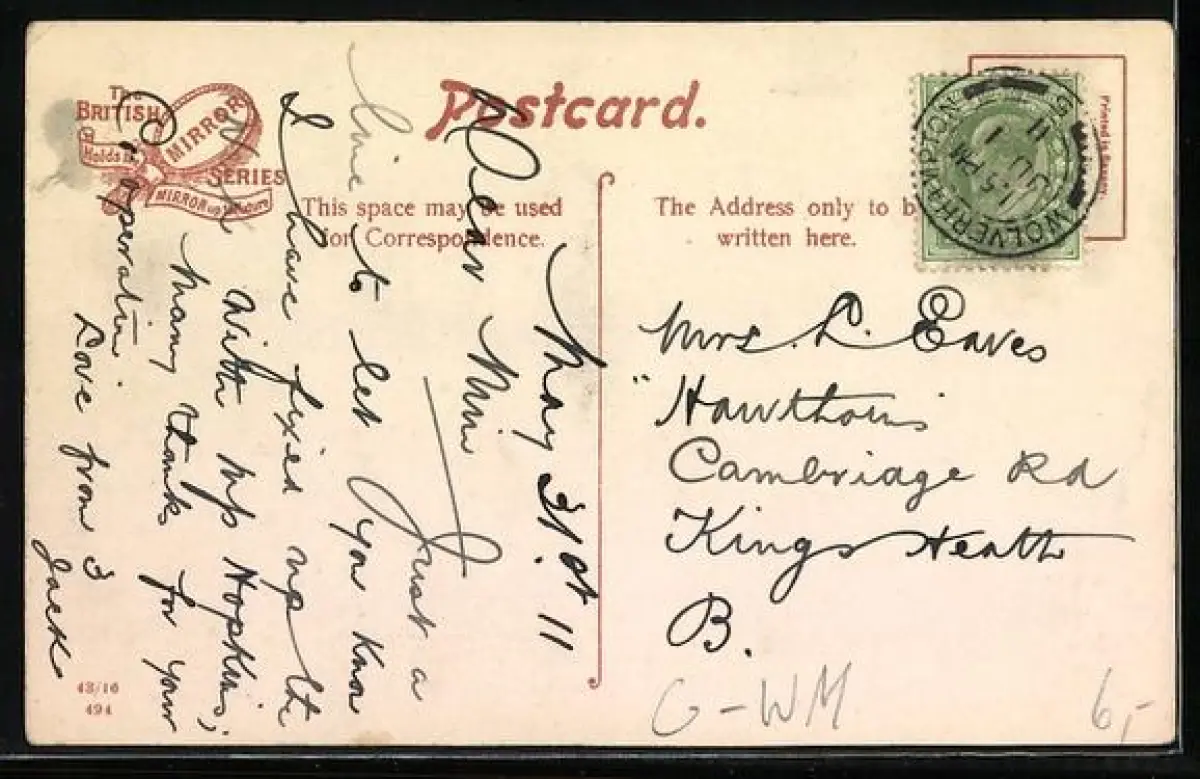 The
BRITISH
MIRROR
SERIES
Holds the
MIRROR up to Nature
Postcard.
This space may be used
for Correspondence.
The Address only to be
written here.
Printed in Saxony.
WOLVERHAMPTON
1.15 PM
JU 1
11
May 31st 11
Dear Min
Just a
line to let you know
I have fixed up the
with Mrs Hopkins,
Many thanks for your
Cooperation
Love from 3
Jack
Mrs. L. Eaves
"Hawthorns
Cambridge Rd
Kings Heath
B.
G-WM
6,-
43/16
494